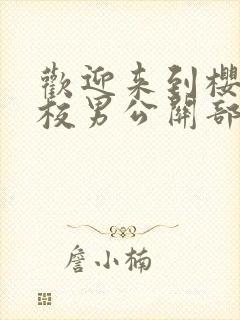 歡迎来到櫻
校男公關部
詹小楠